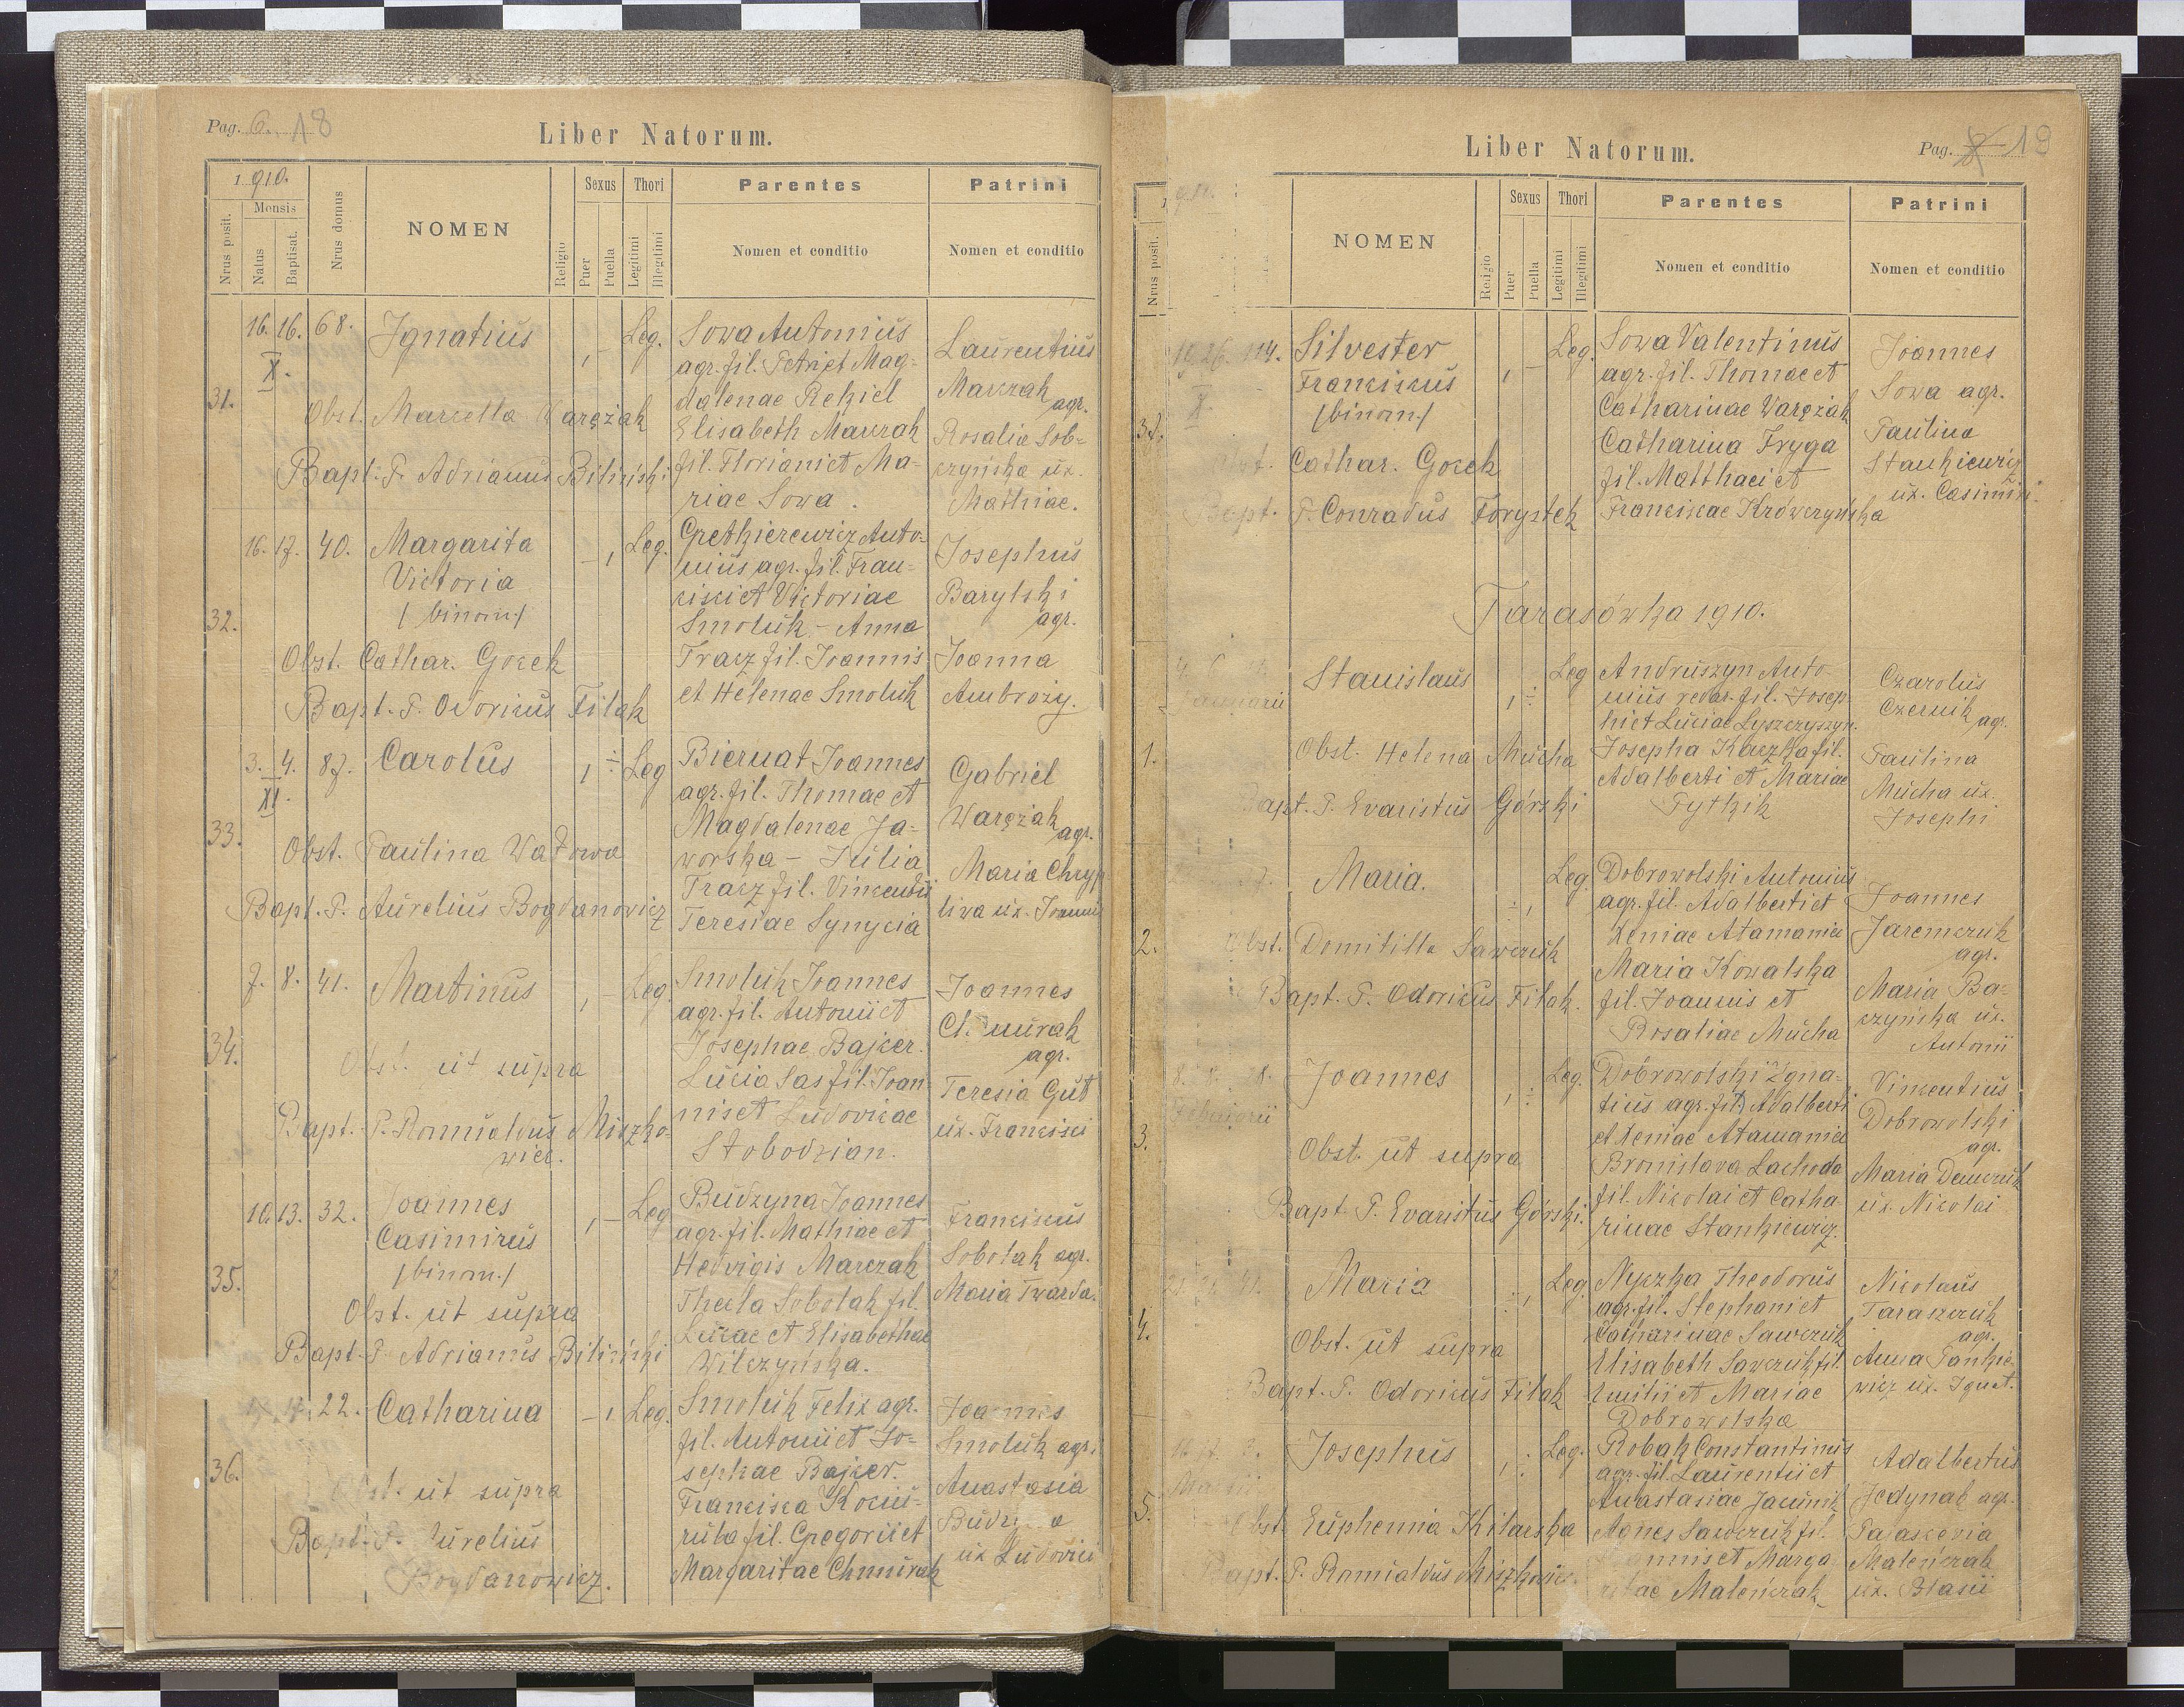 Pag. 6. 18
Liber Natorum.
1910.
Nrus posit.
Mensis
Natus
Baptisat.
Nrus domus
NOMEN
Religio
Sexus
Puer
Puella
Thori
Legitimi
Illegitimi
Parentes
Nomen et conditio
Patrini
Nomen et conditio
31.
16. 16. 68.
X.
Ignatius
Leg.
Obst. Marcella Waręziak
Bapt. P. Adrianus Biliński
Sowa Antonius
agr. fil. Petri et Mag-
dalenae Rekiel
Elisabeth Marczak
fil. Floriani et Ma-
riae Sowa.
Laurentius
Marczak agr.
Rosalia Sob-
czyńska ux.
Mathiae.
32.
16. 17. 40.
Margarita
Victoria
/binom/
Leg.
Obst. Cathar. Gocek
Bapt. P. Odoricus Filak
Grethierewicz Anto-
nius agr. fil. Fran-
cisci et Victoriae
Smoluk - Anna
Tracz fil. Joannis
et Helenae Smoluk
Josephus
Barylski
agr.
Joanna
Ambroży.
33.
3. 4. 87.
XI.
Carolus
Leg
Obst. Paulina Watowa
Bapt. P. Aurelius Bogdanowicz
Biernat Joannes
agr. fil. Thomae et
Magdalenae Ja-
worska - Julia
Tracz fil. Vincentii
Teresiae Synycia
Gabriel
Waręziak
agr.
Maria Chryp
liwa ux. Joannis
34.
7. 8. 41.
Martinus
Leg.
Obst. ut supra
Bapt. P. Romualdus Miszko-
wiec.
Smoluk Joannes
agr. fil. Antonii et
Josephae Bajcer.
Lucia Sas fil. Joan
nis et Ludovicae
Stobodzian.
Joannes
Chmurak
agr.
Teresia Gut
ux. Francisci
35.
10. 13. 32.
Joannes
Casimirus
/binom./
Leg
Obst. ut supra
Bapt. P. Adrianus Biliński
Budzyna Joannes
agr. fil. Mathiae et
Hedvigis Marczak
Thecla Sobolak fil.
Lucae et Elisabethae
Wilczyńska.
Franciscus
Sobolak agr.
Maria Twarda.
36.
22.
Catharina
Leg.
Obst. ut supra
Bapt. P. Aurelius
Bogdanowicz.
Smoluk Felix agr.
fil. Antonii et Jo-
sephae Bajcer.
Francisca Kociu-
ruba fil. Gregorii et
Margaritae Chmurak
Joannes
Smoluk agr.
Anastasia
ux Ludovici
Liber Natorum.
Pag. 19
Nrus posit.
NOMEN
Religio
Sexus
Puer
Puella
Thori
Legitimi
Illegitimi
Parentes
Nomen et conditio
Patrini
Nomen et conditio
26. 114.
X.
Silvester
Franciscus
/binom/
Leg.
Obst. Cathar. Gocek
Bapt. P. Conradus Forystek
Sowa Valentinus
agr. fil. Thomae et
Catharinae Waręziak
Catharina Fryga
fil. Matthaei et
Franciscae Krówczyńska
Joannes
Sowa agr.
Paulina
Stankiewicz
ux. Casimiri.
Tarasówka 1910.
1.
Januarii
Stanislaus
Leg
Obst. Helena Mucha
Bapt. P. Evaristus Górski
Andruszyn Anto-
nius redar. fil. Josep
hi et Luciae Łyszczyszyn.
Josepha Kaczka fil.
Adalberti et Mariae
Pytkik
Czarolus
Czernik agr.
Paulina
Mucha ux.
Josephi
2.
Maria.
Leg
Obst. Domitilla Sawczuk
Bapt. P. Odoricus Filak.
Dobrowolski Antonius
agr. fil. Adalberti et
Xeniae Atamaniec
Maria Kowalska
fil. Joannis et
Rosaliae Mucha
Joannes
Jaremczuk
agr.
Maria Ba-
czyńska ux.
Antonii
3.
8. 8. 28.
Februarii
Joannes
Leg.
Obst. ut supra
Bapt. P. Evaristus Górski.
Dobrowolski Igna-
tius agr. fil. Adalberti
et Xeniae Atamaniec
Bronislava Lachoda
fil. Nicolai et Catha-
rinae Stankiewicz.
Vincentius
Dobrowolski
agr.
Maria Demczuk
ux. Nicolai
4.
Maria
Leg.
Obst. ut supra
Bapt. P. Odoricus Filak
Nyczka Theodorus
agr. fil. Stephani et
Catharinae Sawczuk
Elisabeth Sawczuk fil.
Emilii et Mariae
Dobrowolska
Nicolaus
Taraszczuk
agr.
Anna Pankie-
wicz ux. Ignat.
5.
Martii
Josephus
Leg.
Obst. Euphemia Kilarska
Bapt. P. Romualdus Miszkowiec.
Robak Constantinus
agr. fil. Laurentii et
Anastasiae Jacunik
Agnes Sawczuk fil.
Joannis et Marga
ritae Maleńczak
Adalbertus
Jedynak agr.
Parascevia
Maleńczak
ux. Blasii